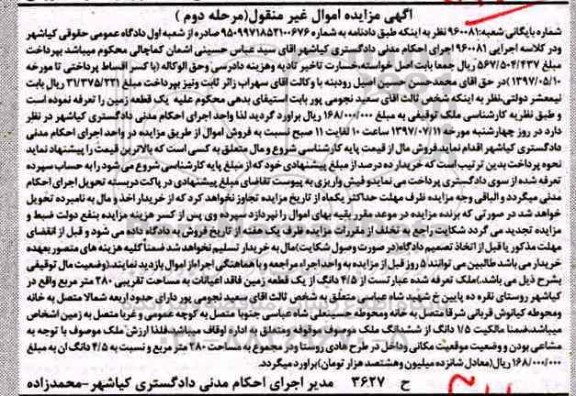 آگهی مزایده اموال غیر منقول(مرحله دوم )
شماره بایگانی شعبه:۹۶۰۰۸۱ نظر به اینکه طبق دادنامه به شماره ۹۵۰۹۹۷۱۸۵۲۱۰۰۶۷۶ صادره از شعبه اول دادگاه عمومی حقوقی کیاشهر
ودر کلاسه اجرایی ۹۶۰۰۸۱ اجرای احکام مدنی دادگستری کیاشهر اقای سید عباس حسینی اشمان کماچالی محکوم میباشد بپرداخت
مبلغ ۵۶۷/۵۰۴/۴۳۷ ریال جمعا بابت اصل خواسته،خسارت تاخیر تادیه وهزینه دادرسی وحق الوکاله (با کسر اقساط پرداختی تا مورخه
۱۳۹۷/۰۵/۱۰) در حق اقای محمد حسن حسین اصیل رودبنه با وکالت اقای سهراب زائر ثابت ونیز بپرداخت مبلغ ۳۱/۳۷۵/۲۳۱ ریال بابت
نیمعشر دولتی،نظر به اینکه شخص ثالث اقای سعید نجومی پور بابت استیفای بدهی محکوم علیه یک قطعه زمین را تعرفه نموده است
و طبق نظریه کارشناسی ملک توقیفی به مبلغ ۱۶۸/۰۰۰/۰۰۰ ریال براورد گردید لذا واحد اجرای احکام مدنی دادگستری کیاشهر در نظر
دارد در روز چهارشنبه مورخه ۱۳۹۷/۰۷/۱۱ ساعت ۱۰ لغایت ۱۱ صبح نسبت به فروش اموال از طریق مزایده در واحد اجرای احکام مدنی
دادگستری کیاشهر اقدام نماید.فروش مال از قیمت پایه کارشناسی شروع و مال متعلق به کسی است که بالاترین قیمت را پیشنهاد نماید
نحوه پرداخت بدین ترتیب است که خریدار ده درصد از مبلغ پیشنهادی خود که از مبلغ پایه کارشناسی شروع می شود را به حساب سپرده
تعرفه شده از سوی دادگستری پرداخت می نماید،و فیش واریزی به پیوست تقاضای مبلغ پیشنهادی در پاکت دربسته تحویل اجرای احکام
مدنی میگردد و الباقی وجه مزایده ظرف مهلت حداکثر یکماه از تاریخ مزایده تجاوز نخواهد کرد که از خریدار اخذ و مال به نامبرده تحویل
خواهد شد در صورتی که برنده مزایده در موعد مقرر بقیه بهای اموال را نپردازد سپرده وی پس از کسر هزینه مزایده بنفع دولت ضبط و
مزایده تجدید می گردد شکایت راجع به تخلف از مقررات مزایده ظرف یک هفته از تاریخ فروش به دادگاه داده می شود و قبل از انقضای
مهلت مذکور یا قبل از اتخاذ تصمیم دادگاه(در صورت وصول شکایت)مال به خریدار تسلیم نخواهد شد ضمناًکلیه هزینه های متصور بعهده
خریدار می باشد طالبین می توانند ۵ روز قبل از مزایده به واحد اجراء مراجعه و با هماهنگی اجراء از اموال بازدید نمایند.(وضعیت مال توقیفی
بشرح ذیل می باشد.)ملک تعرفه شده عبارتست از ۴/۵ دانگ از یک قطعه زمین فاقد اعیانات به مساحت تقریبی ۲۸۰ متر مربع واقع در
کیاشهر روستای نقره ده پایین خ شهید شاه عباسی متعلق به شخص ثالث اقای سعید نجومی پور دارای حدود اربعه شمالا متصل به خانه
ومحوطه کیانوش قربانی شرقا متصل به خانه ومحوطه حسینعلی شاه عباسی جنوبا متصل به کوچه عمومی و غربا متصل به زمین اشخاص
میباشد،ضمنا مالکیت ۱/۵ دانگ از ششدانگ ملک موصوف موقوفه ومتعلق به اداره اوقاف میباشد.فلذا ارزش ملک موصوف با توجه به
مشاعی بودن و وضعیت موقعیت مکانی وداخل در طرح هادی روستا ودر مجموع به مساحت ۲۸۰ متر مربع و نسبت به ۴/۵ دانگ ان به مبلغ
۱۶۸/۰۰۰/۰۰۰ ریال(معادل شانزده میلیون وهشتصد هزار تومان)براورد میگردد.
ح ۳۶۲۷ مدیر اجرای احکام مدنی دادگستری کیاشهر-محمدزاده